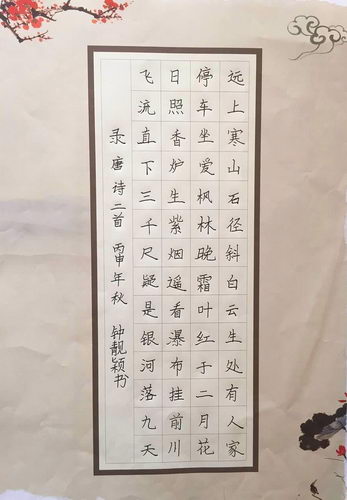 远上寒山石径斜白云生处有人家
停车坐爱枫林晚霜叶红于二月花
日照香炉生紫烟遥看瀑布挂前川
飞流直下三千尺疑是银河落九天
录唐诗二首 丙申年秋 钟靓颖书